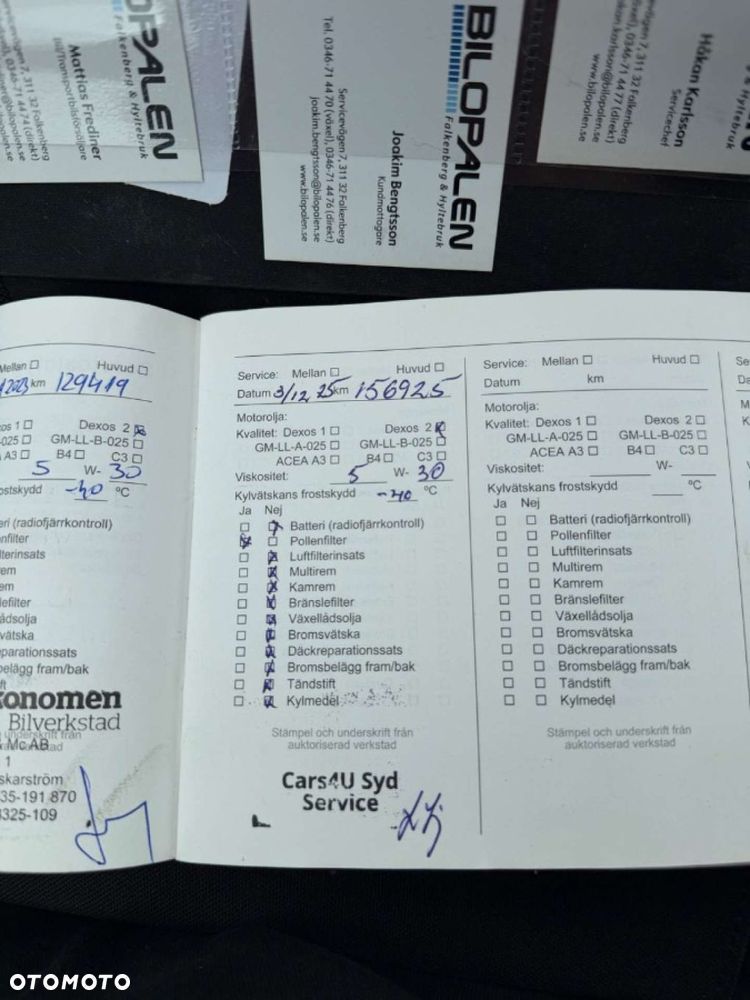 BILOPALEN
Falkenberg & Hyltebruk
Mattias Frediner
Bil/Transportbilsförsäljare
7, 311 32 Falkenberg
0346-71 44 74 (direkt)
www.bilopalen.se
BILOPALEN
Falkenberg & Hyltebruk
Joakim Bengtsson
Kundmottagare
Servicevägen 7, 311 32 Falkenberg
Tel. 0346-71 44 70 (växel), 0346-71 44 76 (direkt)
joakim.bengtsson@bilopalen.se
www.bilopalen.se
Håkan Karlsson
Servicechef
7, 311 32 Falkenberg
0346-71 44 77 (direkt)
hakan.karlsson@bilopalen.se
www.bilopalen.se
Mellan Huvud
km 129419
Dexos 2
GM-LL-B-025
A3 B4 C3
5 W- 30
-40 °C
(radiofjärrkontroll)
konomen
Bilverkstad
MC AB
1
skarström
35-191 870
325-109
Service: Mellan Huvud
Datum 3/12, 25 km 156925
Motorolja:
Kvalitet: Dexos 1 Dexos 2
GM-LL-A-025 GM-LL-B-025
ACEA A3 B4 C3
Viskositet: 5 W- 30
Kylvätskans frostskydd -40 °C
Ja Nej
Batteri (radiofjärrkontroll)
Pollenfilter
Luftfilterinsats
Multirem
Kamrem
Bränslefilter
Växellådsolja
Bromsvätska
Däckreparationssats
Bromsbelägg fram/bak
Tändstift
Kylmedel
Stämpel och underskrift från
auktoriserad verkstad
Cars4U Syd
Service
Service: Mellan Huvud
Datum km
Motorolja:
Kvalitet: Dexos 1 Dexos 2
GM-LL-A-025 GM-LL-B-025
ACEA A3 B4 C3
Viskositet: W-
Kylvätskans frostskydd °C
Ja Nej
Batteri (radiofjärrkontroll)
Pollenfilter
Luftfilterinsats
Multirem
Kamrem
Bränslefilter
Växellådsolja
Bromsvätska
Däckreparationssats
Bromsbelägg fram/bak
Tändstift
Kylmedel
Stämpel och underskrift från
auktoriserad verkstad
OTOMOTO